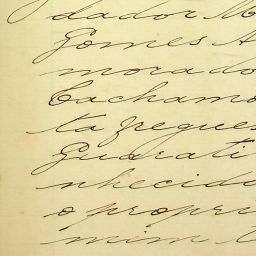 dador M
Gomes A
morado
Cachamo
ta fregues
Guarati
nhecido
o propri
mim t